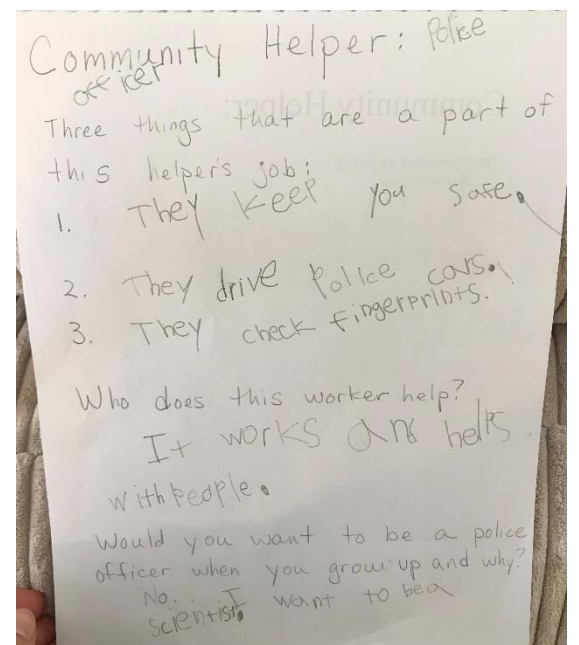 Community Helper: Police
officer
Three things that are a part of
this helper's job:
1. They keep you safe.
2. They drive Police cars.
3. They check fingerprints.
Who does this worker help?
It works ans helps
with people.
Would you want to be a police
officer when you grow up and why?
No. I want to be a
scientist.